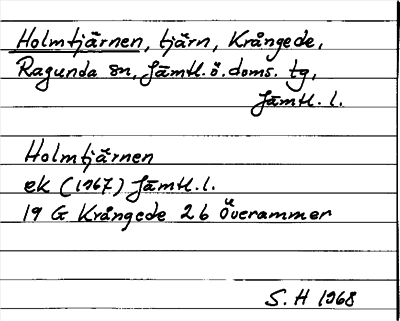 Holmtjärnen, tjärn, Krångede,
Ragunda sn, Jämtl. ö. doms. tg,
Jämtl. l.
Holmtjärnen
ek (1967) Jämtl. l.
19 G Krångede 2 b Överammer
S. H 1968